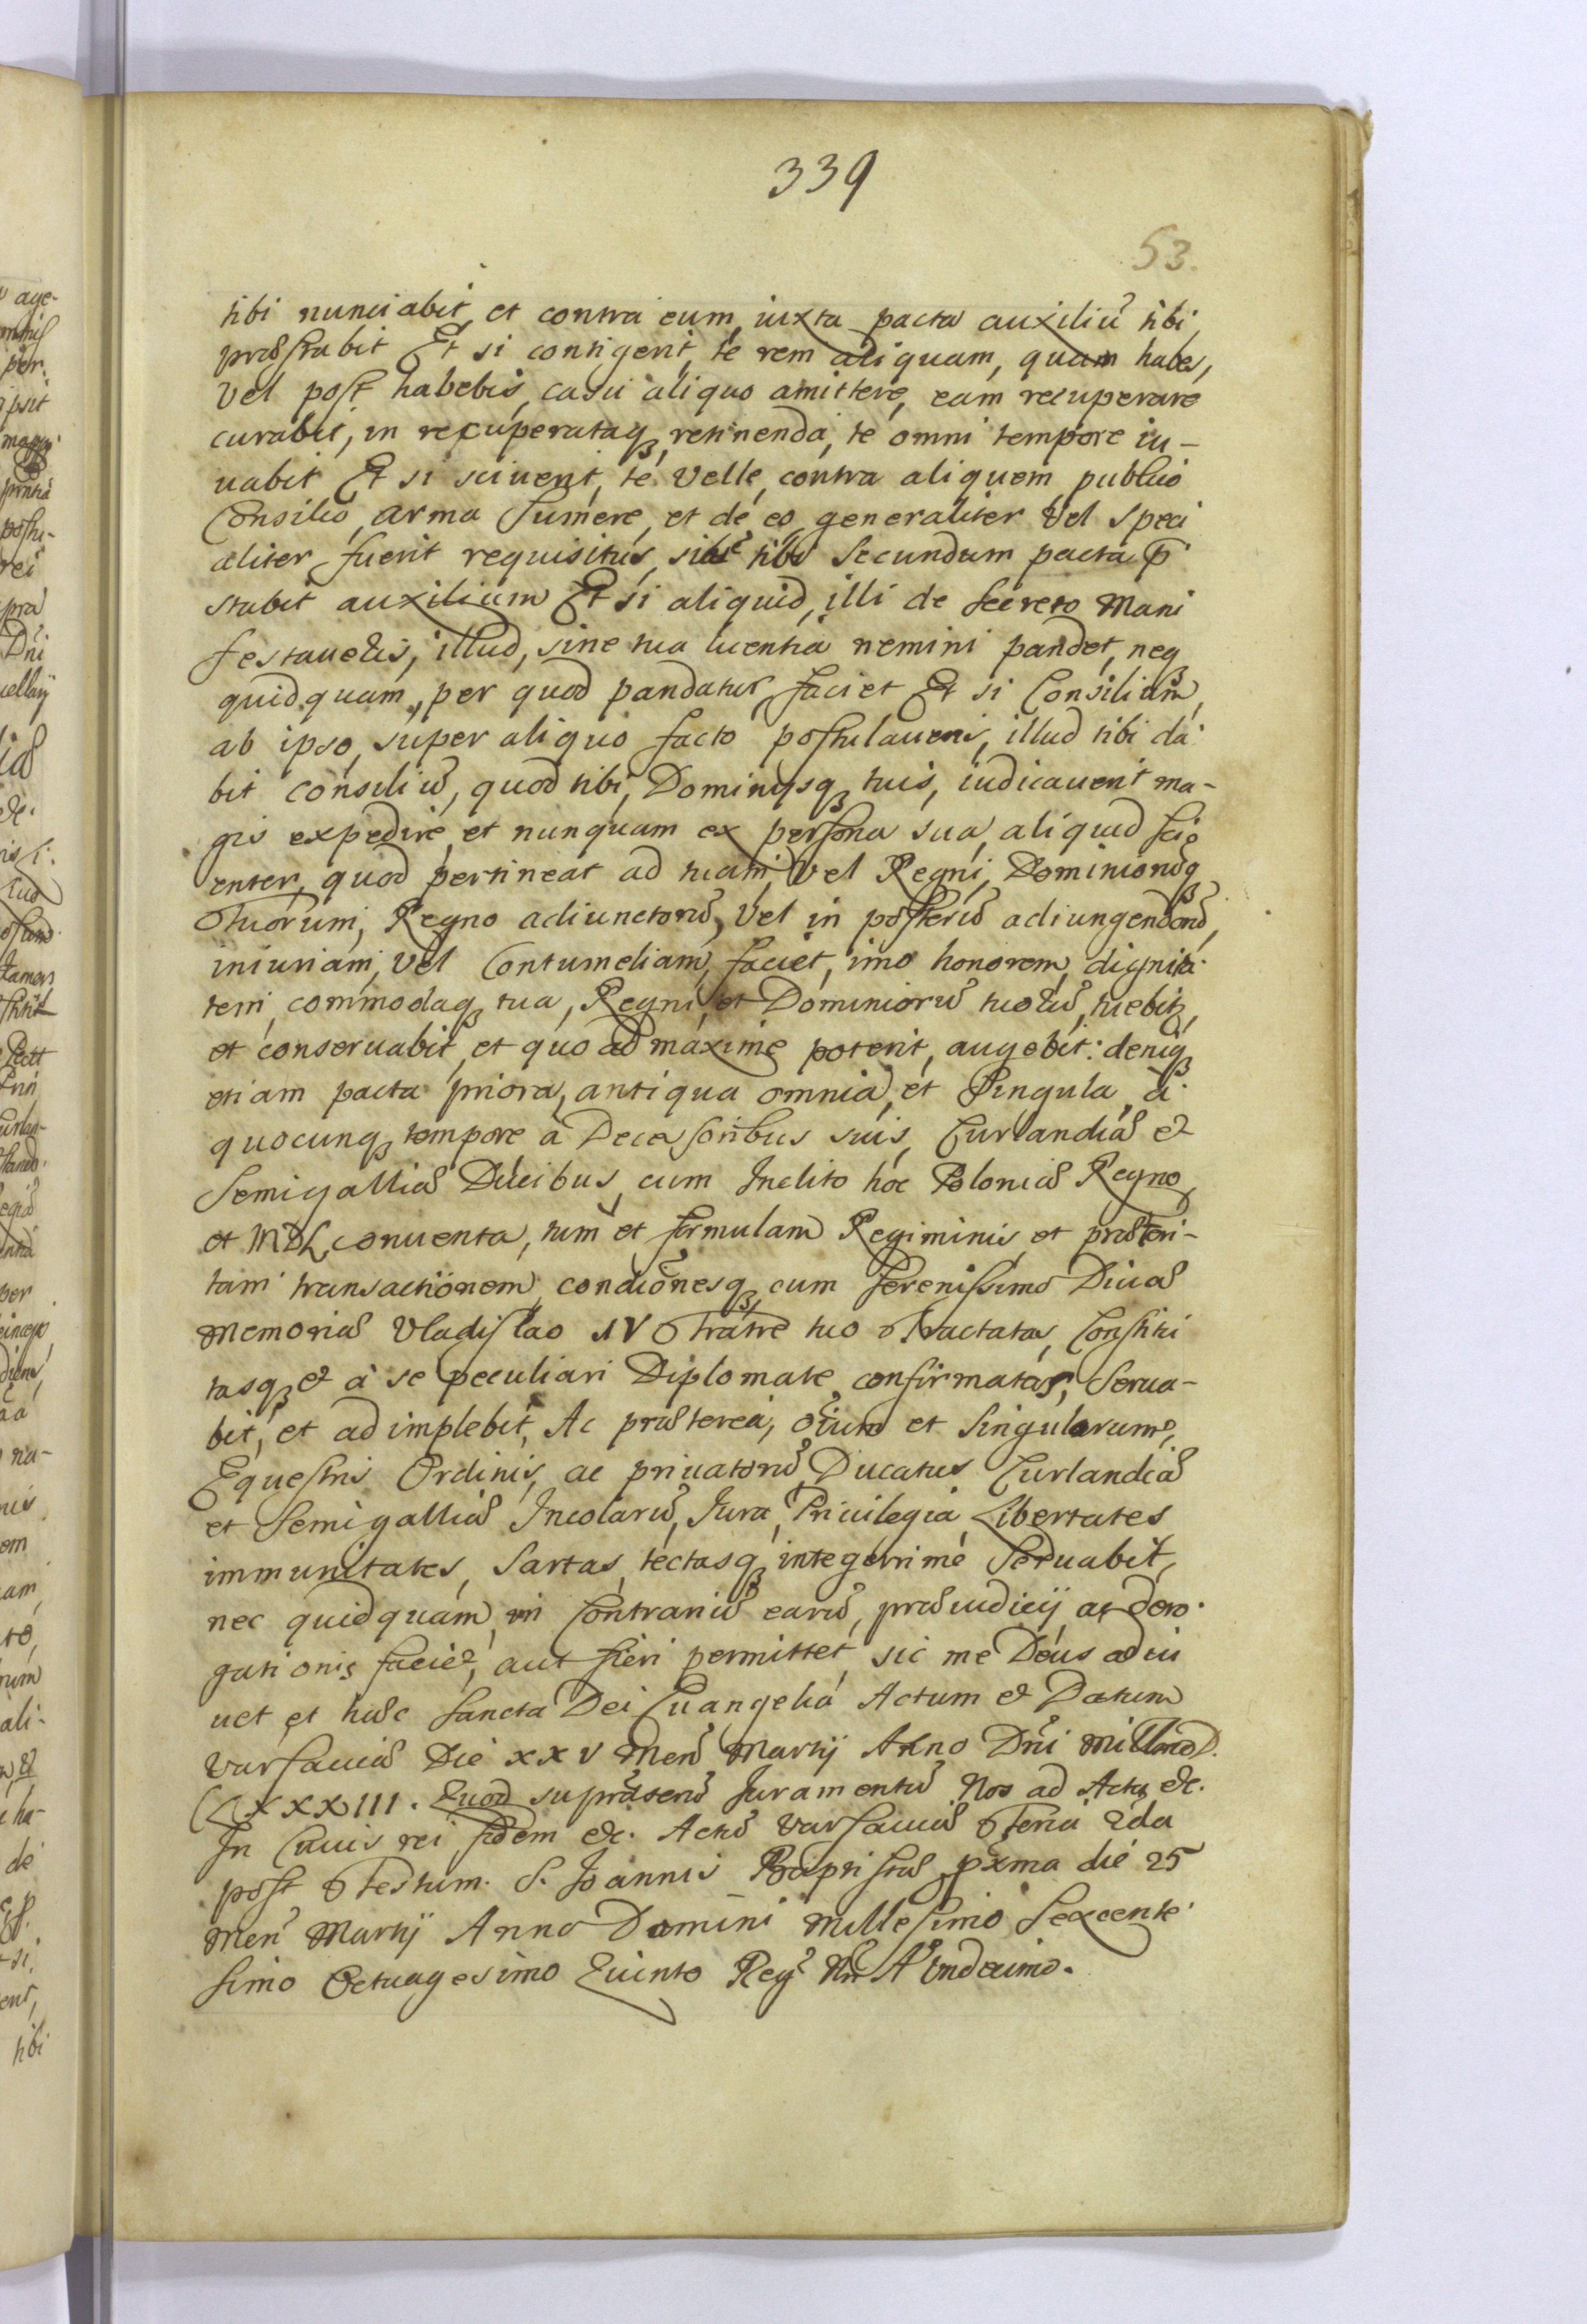 339
53.
tibi nunciabit, et contra eum, iuxta pacta auxiliũ tibi,
præstabit Et si contigerit, te rem aliquam, quam habes,
vel post habebis, casu aliquo amittere, eam recuperare
curabit, in recuperataq₃ retinenda, te omni tempore iu-
uabit Et si sciuerit, te velle, contra aliquem publico
Consilio, arma sumere, et de eo generaliter vel speci
aliter fuerit requisitus, tibi secundum pacta p̃
stabit auxilium Et si aliquid, illi de secreto Mani
festaueris, illud, sine tua licentia nemini pandet, neq₃
quidquam, per quod pandatur, faciet Et si Consilium,
ab ipso, super aliquo facto postulaueris, illud tibi da-
bit consiliũ, quod tibi, Dominijsq₃ tuis, iudicauerit ma-
gis expedire, et nunquam ex persona sua, aliquid sci-
enter, quod pertineat ad tuam, vel Regni, Dominiorũq₃
Tuorum, Regno adiunctorũ, vel in posterũ adiungendorũ,
iniuriam, vel Contumeliam, faciet, imo honorem, dignita-
tem, commodaq₃ tua, Regni, et Dominiorũ tuorũ, tuebit₃,
et conseruabit, et quo ad maxime poterit, augebit: deniq₃
etiam pacta priora, antiqua omnia, et Singula, a
quocunq₃ tempore a Decessoribus suis, Curlandiæ et
Semigalliæ Ducibus, cum Inclito hoc Poloniæ Regno,
et MDL conuenta, tum et formulam Regiminis, et præteri-
tam transactionem, condic̃onesq₃, cum Serenissimo Diuæ
Memoriæ Vladislao IV Fratre tuo Tractatas, Constitu
tasq₃ et a se peculiari Diplomate confirmatas, Serua-
bit, et adimplebit, Ac præterea, oĩum et Singularum,
Equestris Ordinis, ac priuatorũ, Ducatus Curlandiæ
et Semigalliæ Incolarũ, Jura, Priuilegia, Libertates
immunitates, Sartas, tectasq₃ integerrime Seruabit,
nec quidquam, in Contrariũ earũ, præiudicij, ac dero-
gationis faciet, aut fieri permittet, sic me Deus adiu
uet et hæc Sancta Dei Euangelia Actum et Datum
Varsauiæ Die XXV Menˢ Martij Anno Dñi Millmo D.
CLXXXIII. Quod supraserũ Juramentũ Nos ad Acta &c.
In Cuius rei fidem &c. Actũ Varsauiæ Feria 2da
post Festum. S. Joannis Baptistæ p̃xma die 25
Menˢ Martij Anno Domini Millesimo Sexcente-
simo Octuagesimo Quinto Regⁱ Nri Aº Undecimo.